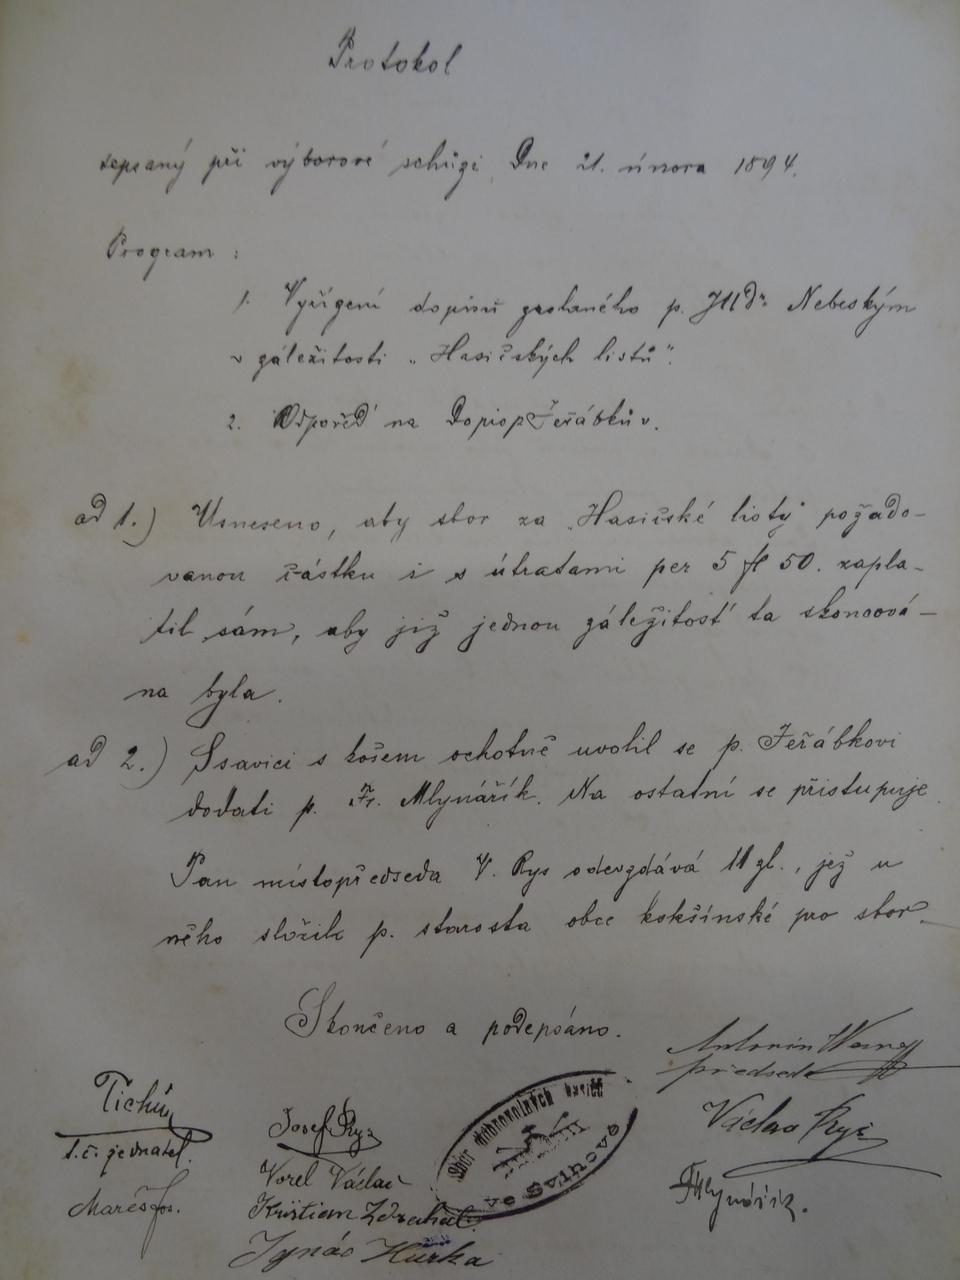 Protokol
sepsaný při výborové schůzi Dne 21. února 1894.
Program :
1. Vyřízení dopisu zaslaného p. JUDr. Nebeským
v záležitosti „Hasičských listů".
2. Odpověď na Dopis p Jeřábkův.
ad 1.) Usneseno, aby sbor za „Hasičské listy" požado-
vanou částku i s útratami per 5 fl 50. zapla-
til sám, aby již jednou záležitosť ta skoncová-
na byla.
ad 2.) Ssavici s košem ochotně uvolil se p. Jeřábkovi
dodati p. Fr. Mlynářík. Na ostatní se přistupuje.
Pan místopředseda V. Rys odevzdává 11 zl., jež u
něho složil p. starosta obce kokšínské pro sbor.
Skončeno a podepsáno.
Antonín
předseda
Tichý
t. č. jednatel.
Josef Rys
Václav Rys
Mareš Jos.
Vorel Václav
Kristian Zdrahal
Ignác Hurka
F Mlynářík.
Sbor dobrovolných hasičů